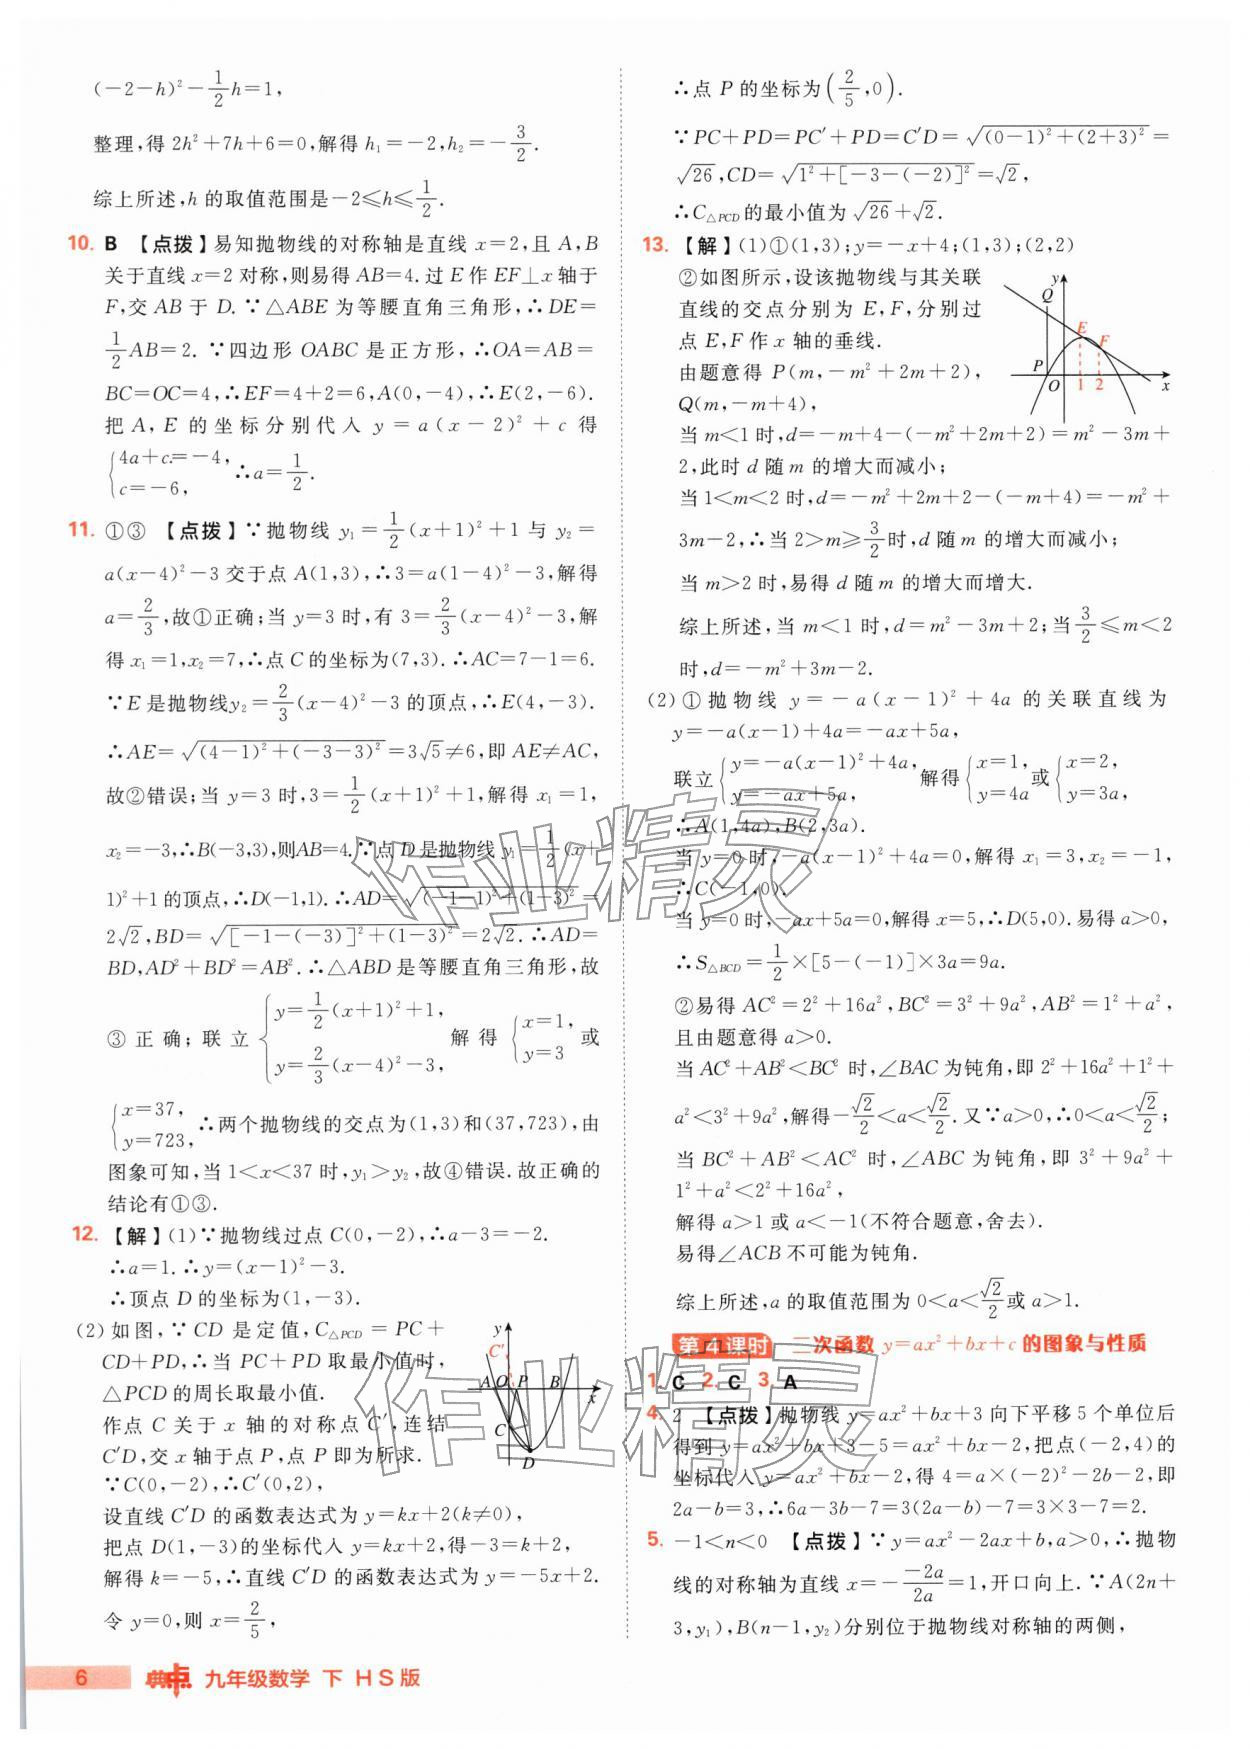 (-2-h)²-1/2h=1,
整理,得 2h²+7h+6=0,解得 h₁=-2,h₂=-3/2.
综上所述,h 的取值范围是-2≤h≤1/2.
10. B 【点拨】易知抛物线的对称轴是直线 x=2,且 A,B
关于直线 x=2 对称,则易得 AB=4. 过 E 作 EF⊥x 轴于
F,交 AB 于 D. ∵△ABE 为等腰直角三角形,∴DE=
1/2AB=2. ∵四边形 OABC 是正方形,∴OA=AB=
BC=OC=4,∴EF=4+2=6,A(0,-4),∴E(2,-6).
把 A, E 的坐标分别代入 y=a(x-2)²+c 得
{4a+c=-4, c=-6, ∴a=1/2.
11. ①③ 【点拨】∵抛物线 y₁=1/2(x+1)²+1 与 y₂=
a(x-4)²-3 交于点 A(1,3),∴3=a(1-4)²-3,解得
a=2/3,故①正确;当 y=3 时,有 3=2/3(x-4)²-3,解
得 x₁=1,x₂=7,∴点 C 的坐标为(7,3).∴AC=7-1=6.
∵E 是抛物线y₂=2/3(x-4)²-3 的顶点,∴E(4,-3).
∴AE=√((4-1)²+(-3-3)²)=3√5≠6,即 AE≠AC,
故②错误;当 y=3 时,3=1/2(x+1)²+1,解得 x₁=1,
x₂=-3,∴B(-3,3),则AB=4.∵点 D 是抛物线y₁=1/2(x+
1)²+1 的顶点,∴D(-1,1).∴AD=√((-1-1)²+(1-3)²)=
2√2,BD=√([-1-(-3)]²+(1-3)²)=2√2. ∴AD=
BD,AD²+BD²=AB². ∴△ABD 是等腰直角三角形,故
③正确;联立{y=1/2(x+1)²+1, y=2/3(x-4)²-3, 解得{x=1, y=3 或
{x=37, y=723, ∴两个抛物线的交点为(1,3)和(37,723),由
图象可知,当 1<x<37 时,y₁>y₂,故④错误.故正确的
结论有①③.
12. 【解】(1)∵抛物线过点 C(0,-2),∴a-3=-2.
∴a=1. ∴y=(x-1)²-3.
∴顶点 D 的坐标为(1,-3).
(2)如图,∵CD 是定值,C△PCD=PC+
CD+PD,∴当 PC+PD 取最小值时,
△PCD 的周长取最小值.
作点 C 关于 x 轴的对称点 C′,连结
C′D,交 x 轴于点 P,点 P 即为所求.
∵C(0,-2),∴C′(0,2),
设直线 C′D 的函数表达式为 y=kx+2(k≠0),
把点 D(1,-3)的坐标代入 y=kx+2,得-3=k+2,
解得 k=-5,∴直线 C′D 的函数表达式为 y=-5x+2.
令 y=0,则 x=2/5,
y
C′
A
O
P
B
x
C
D
∴点 P 的坐标为(2/5,0).
∵PC+PD=PC′+PD=C′D=√((0-1)²+(2+3)²)=
√26,CD=√(1²+[-3-(-2)]²)=√2,
∴C△PCD的最小值为√26+√2.
13. 【解】(1)①(1,3);y=-x+4;(1,3);(2,2)
②如图所示,设该抛物线与其关联
直线的交点分别为 E,F,分别过
点 E,F 作 x 轴的垂线.
由题意得 P(m,-m²+2m+2),
Q(m,-m+4),
y
Q
E
F
P
O
1
2
x
当 m<1 时,d=-m+4-(-m²+2m+2)=m²-3m+
2,此时 d 随 m 的增大而减小;
当 1<m<2 时,d=-m²+2m+2-(-m+4)=-m²+
3m-2,∴当 2>m≥3/2时,d 随 m 的增大而减小;
当 m>2 时,易得 d 随 m 的增大而增大.
综上所述,当 m<1 时,d=m²-3m+2;当3/2≤m<2
时,d=-m²+3m-2.
(2)①抛物线 y=-a(x-1)²+4a 的关联直线为
y=-a(x-1)+4a=-ax+5a,
联立{y=-a(x-1)²+4a, y=-ax+5a, 解得{x=1, y=4a 或{x=2, y=3a,
∴A(1,4a),B(2,3a).
当 y=0 时,-a(x-1)²+4a=0,解得 x₁=3,x₂=-1,
∴C(-1,0).
当 y=0时,-ax+5a=0,解得 x=5,∴D(5,0).易得 a>0,
∴S△BCD=1/2×[5-(-1)]×3a=9a.
②易得 AC²=2²+16a²,BC²=3²+9a²,AB²=1²+a²,
且由题意得 a>0.
当 AC²+AB²<BC² 时,∠BAC 为钝角,即 2²+16a²+1²+
a²<3²+9a²,解得-√2/2<a<√2/2.又∵a>0,∴0<a<√2/2;
当 BC²+AB²<AC² 时,∠ABC 为钝角,即 3²+9a²+
1²+a²<2²+16a²,
解得 a>1 或 a<-1(不符合题意,舍去).
易得∠ACB 不可能为钝角.
综上所述,a 的取值范围为 0<a<√2/2或 a>1.
第4课时 二次函数 y=ax²+bx+c 的图象与性质
1. C 2. C 3. A
4. 2 【点拨】抛物线 y=ax²+bx+3 向下平移 5 个单位后
得到 y=ax²+bx+3-5=ax²+bx-2,把点(-2,4)的
坐标代入 y=ax²+bx-2,得 4=a×(-2)²-2b-2,即
2a-b=3,∴6a-3b-7=3(2a-b)-7=3×3-7=2.
5. -1<n<0 【点拨】∵y=ax²-2ax+b,a>0,∴抛物
线的对称轴为直线 x=-(-2a)/(2a)=1,开口向上. ∵A(2n+
3,y₁),B(n-1,y₂)分别位于抛物线对称轴的两侧,
作业精灵
作业精灵
6 典中点 九年级数学 下 HS版